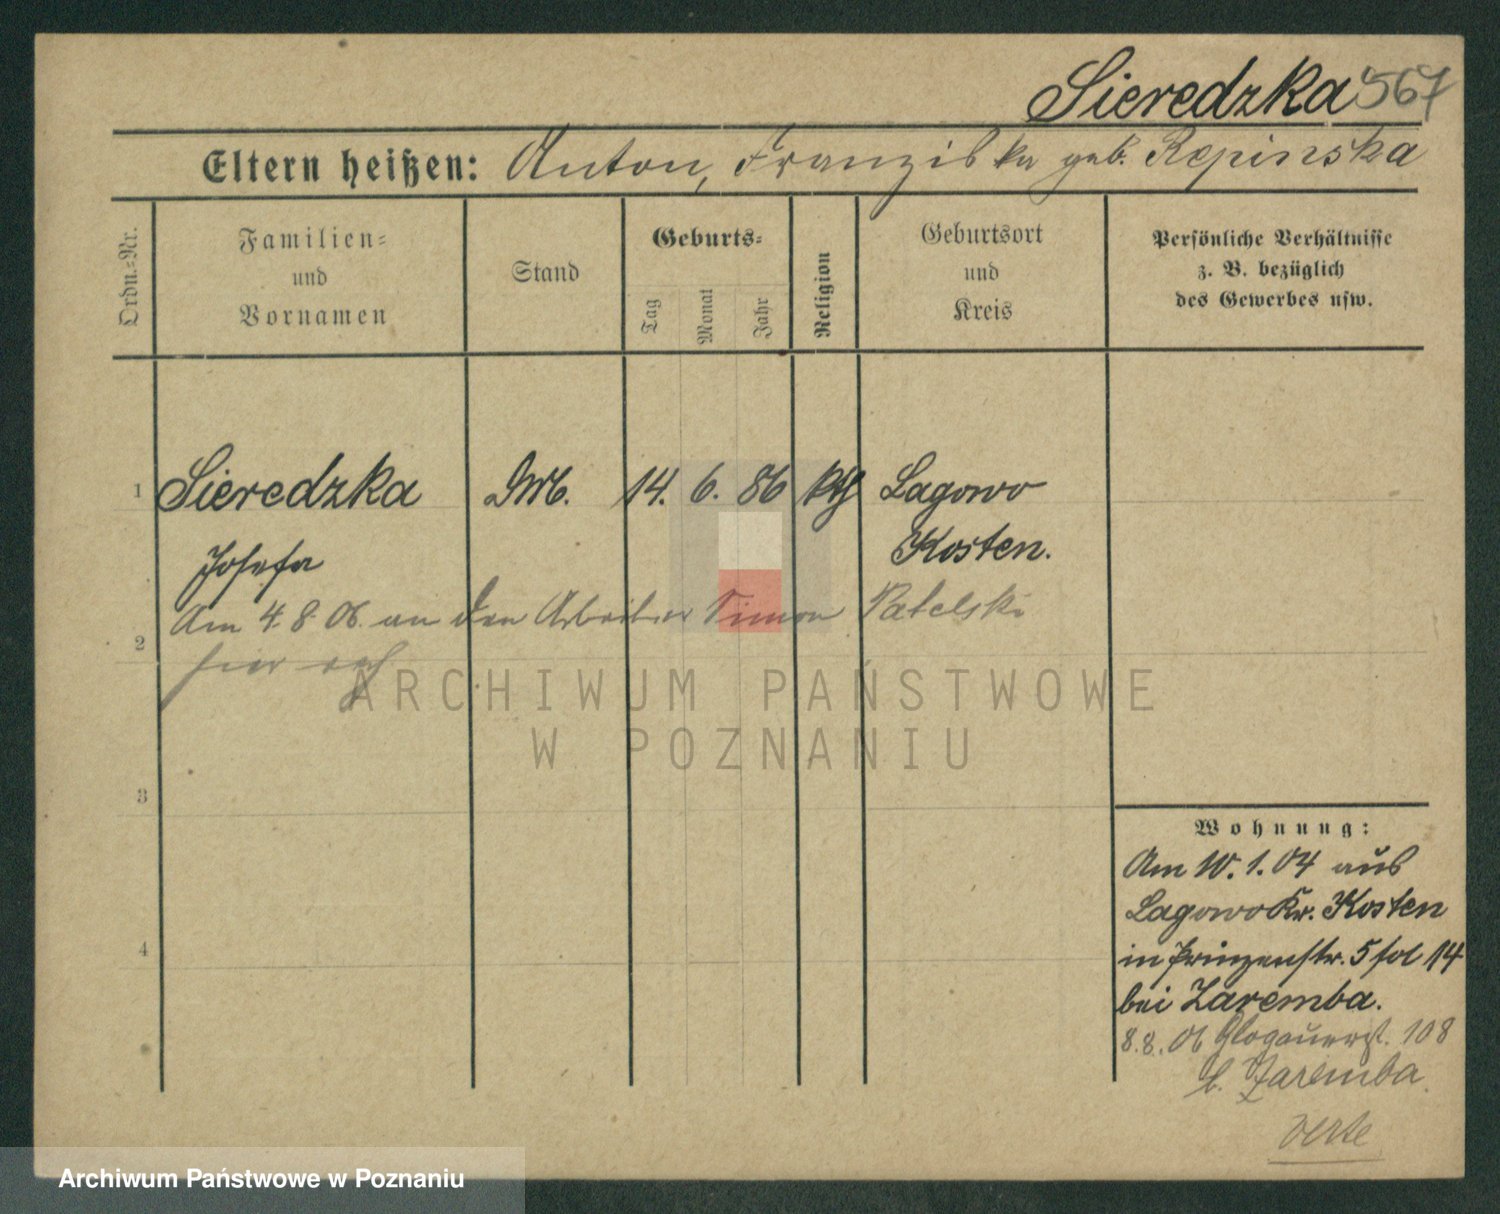 Sieredzka 567
Eltern heißen: Anton, Franziska geb. Repinska
Ordn.-Nr.
Familien- und Vornamen
Stand
Geburts-
Tag
Monat
Jahr
Religion
Geburtsort und Kreis
Persönliche Verhältnisse z. B. bezüglich des Gewerbes usw.
1 Sieredzka 14. 6. 86 kth Lagowo
Josefa Kosten.
Am 4.8.06. an den Arbeiter Simon Patelski
2 hier
3
4
Wohnung:
Am 10.1.04 aus
Lagowo Kr. Kosten
in Prinzenstr. 5 fol 14
bei Zaremba.
8.8.06 Glogauerst. 108
b. Zaremba
verte
ARCHIWUM PAŃSTWOWE
W POZNANIU
Archiwum Państwowe w Poznaniu